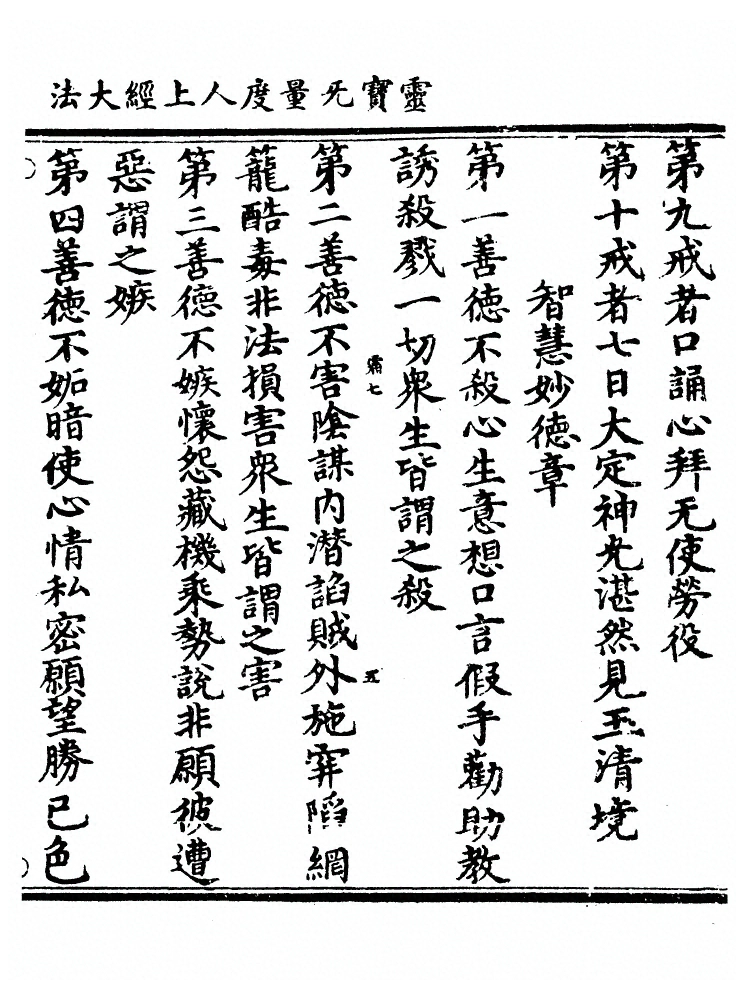 靈寶无量度人上經大法
第九戒者口誦心拜无使勞役
第十戒者七日大定神光湛然見玉清境
智慧妙德章
第一善德不殺心生意想口言假手勸助教
誘殺戮一切衆生皆謂之殺
霜七
五
第二善德不害陰謀内潜諂賊外施穽䧟網
籠酷毒非法損害衆生皆謂之害
第三善德不嫉懷怨藏機乘勢說非願彼遭
惡謂之嫉
第四善德不妬暗使心情私密願望勝已色